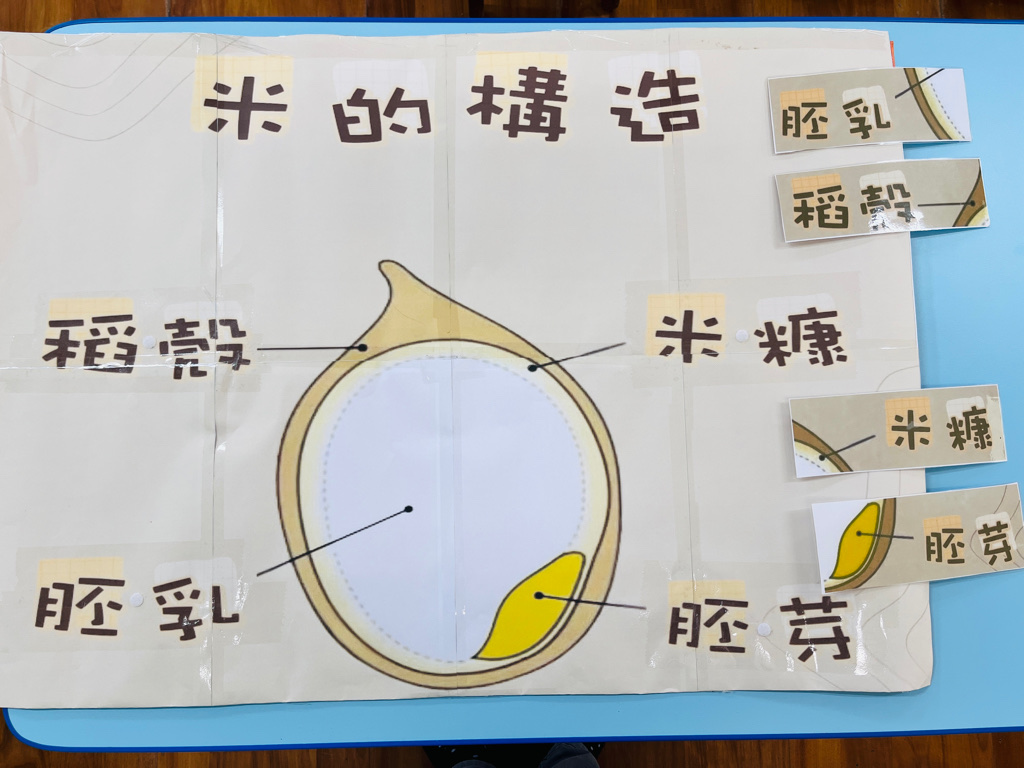 米的構造
胚乳
稻殼
稻殼
米糠
米糠
胚芽
胚乳
胚芽